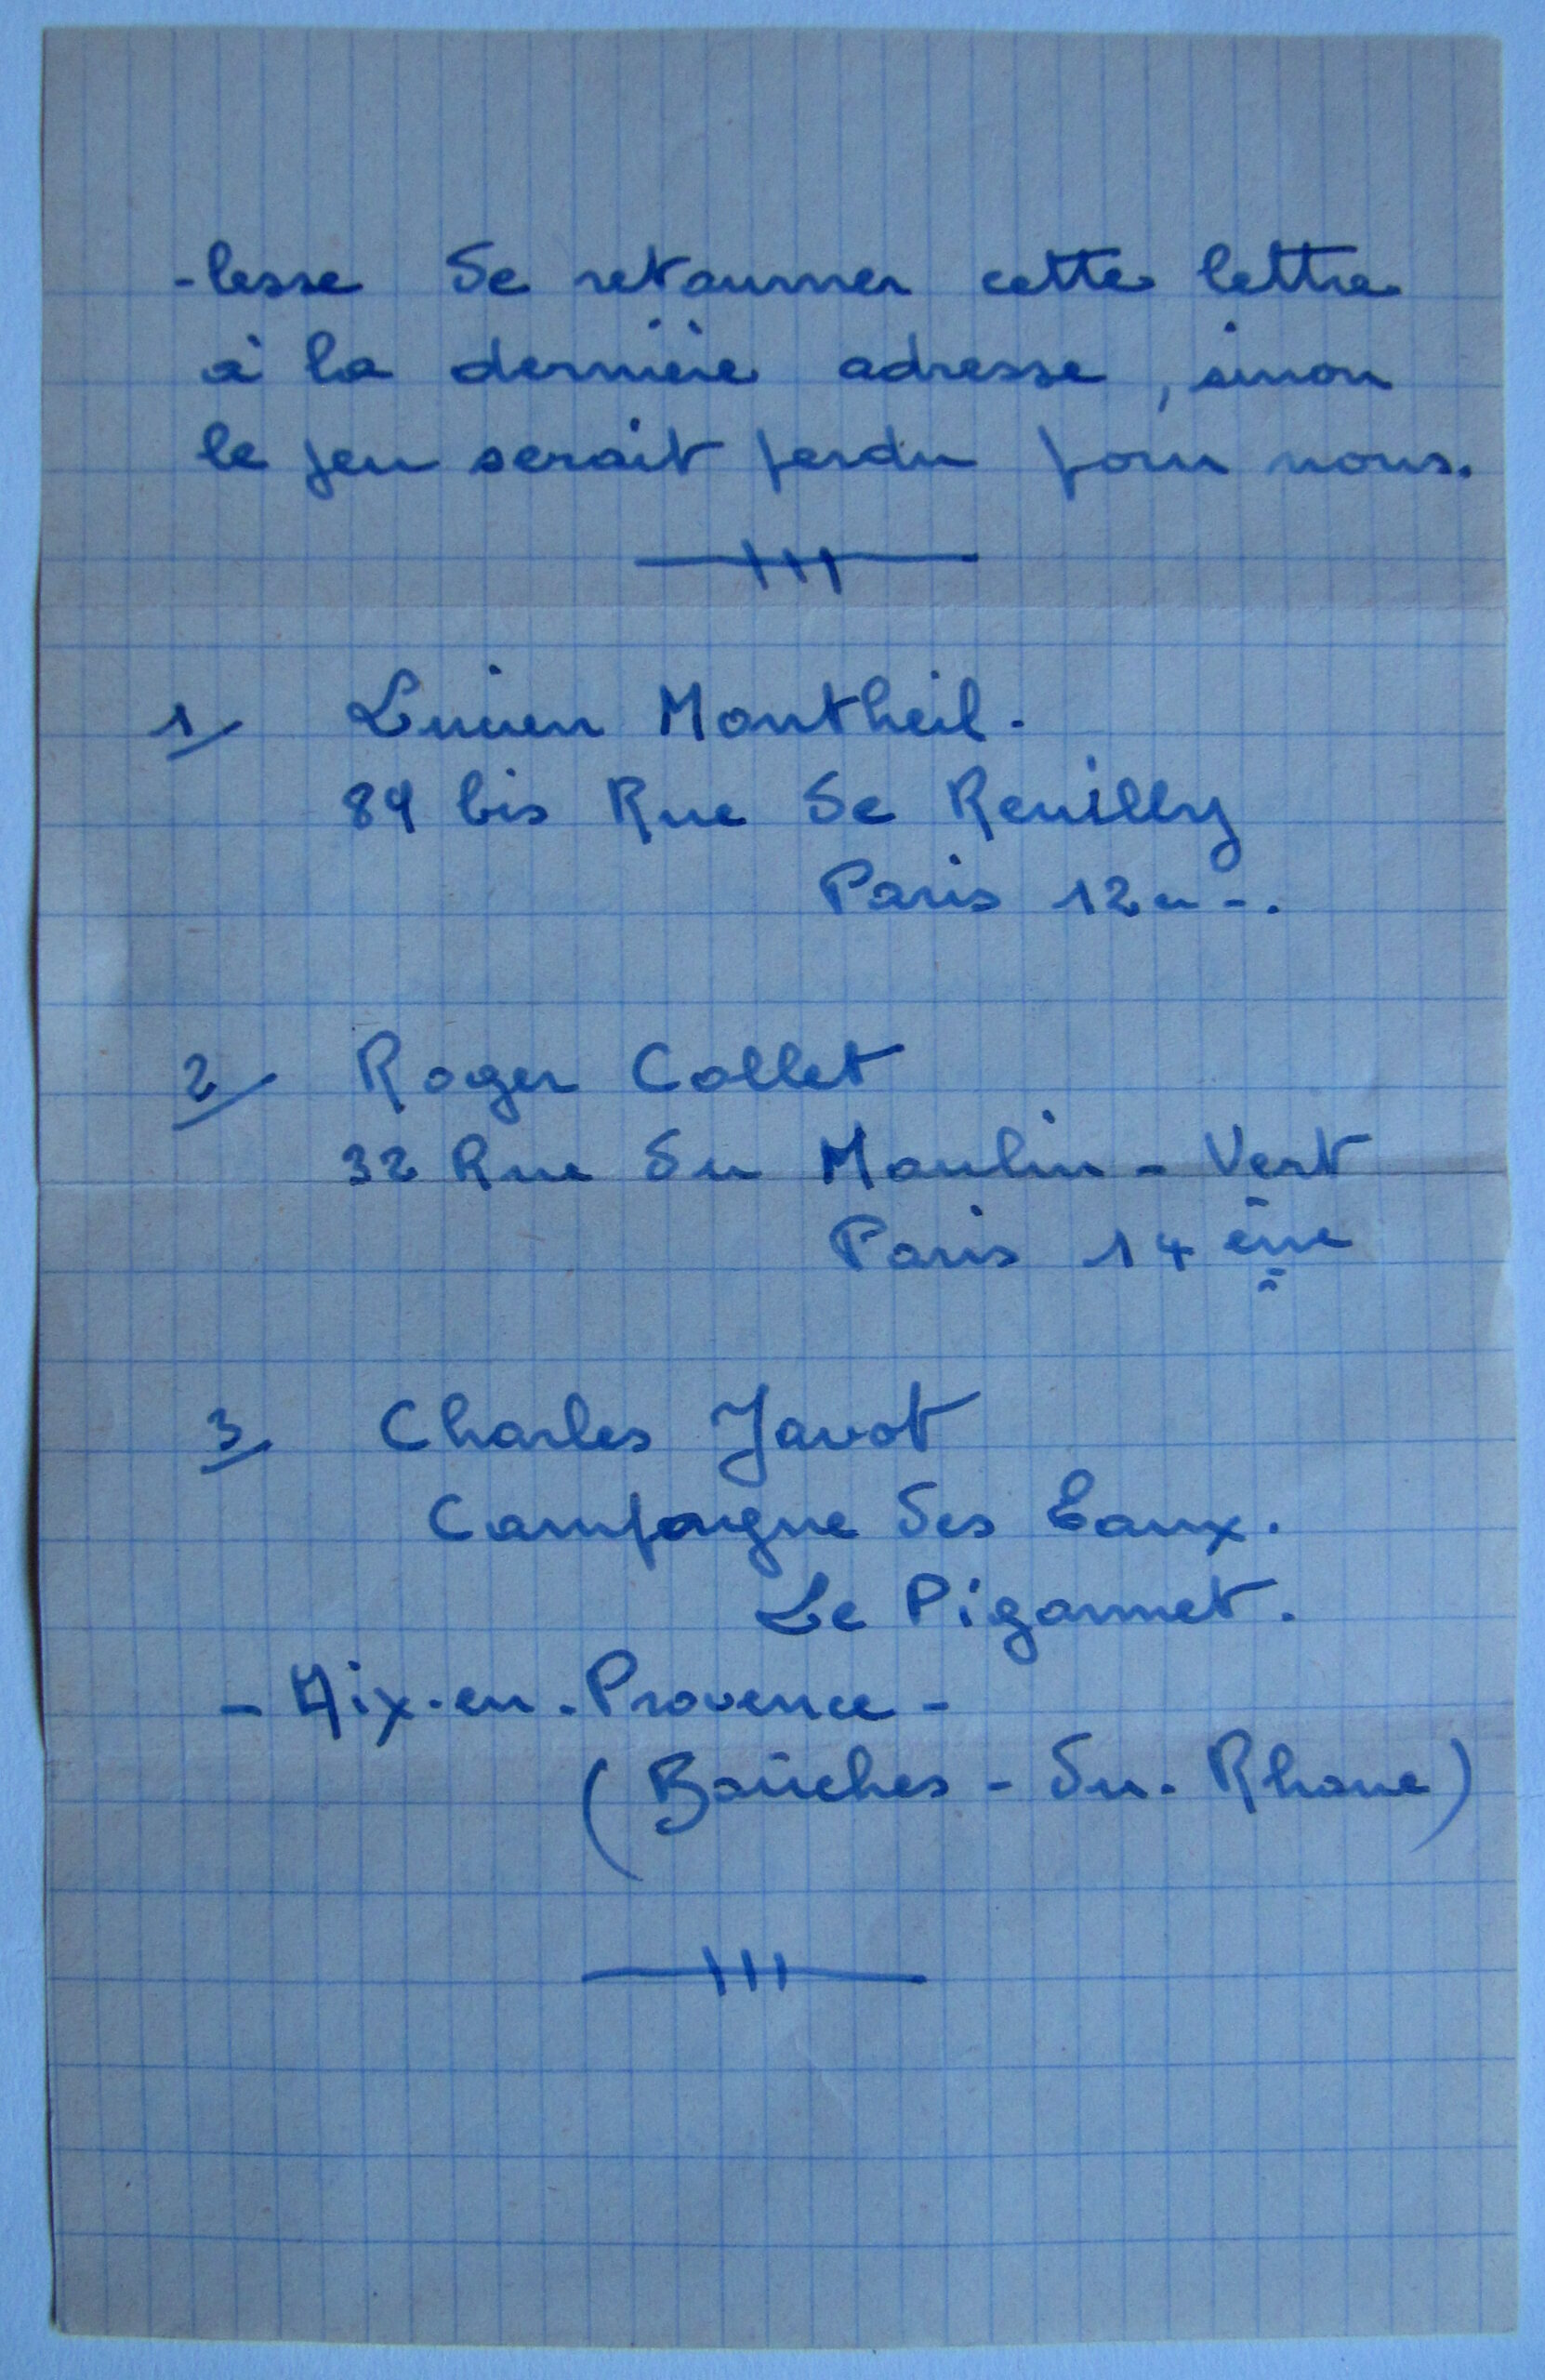 -lesse de retourner cette lettre
à la dernière adresse, sinon
le jeu serait perdu pour nous.
1/ Lucien Montheil.
89 bis Rue de Reuilly
Paris 12e -.
2/ Roger Collet
32 Rue du Moulin - Vert
Paris 14 ème
3/ Charles Javot
Campagne des Eaux.
Le Pigonnet.
- Aix-en-Provence -
(Boûches - du - Rhone)